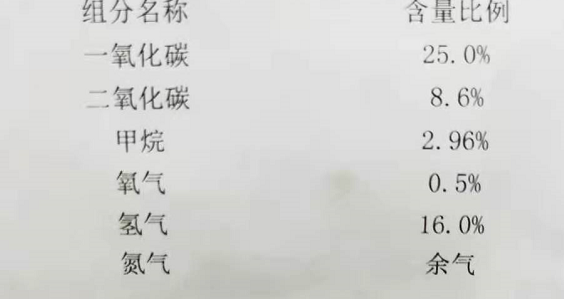 组分名称 含量比例
一氧化碳 25.0%
二氧化碳 8.6%
甲烷 2.96%
氧气 0.5%
氢气 16.0%
氮气 余气